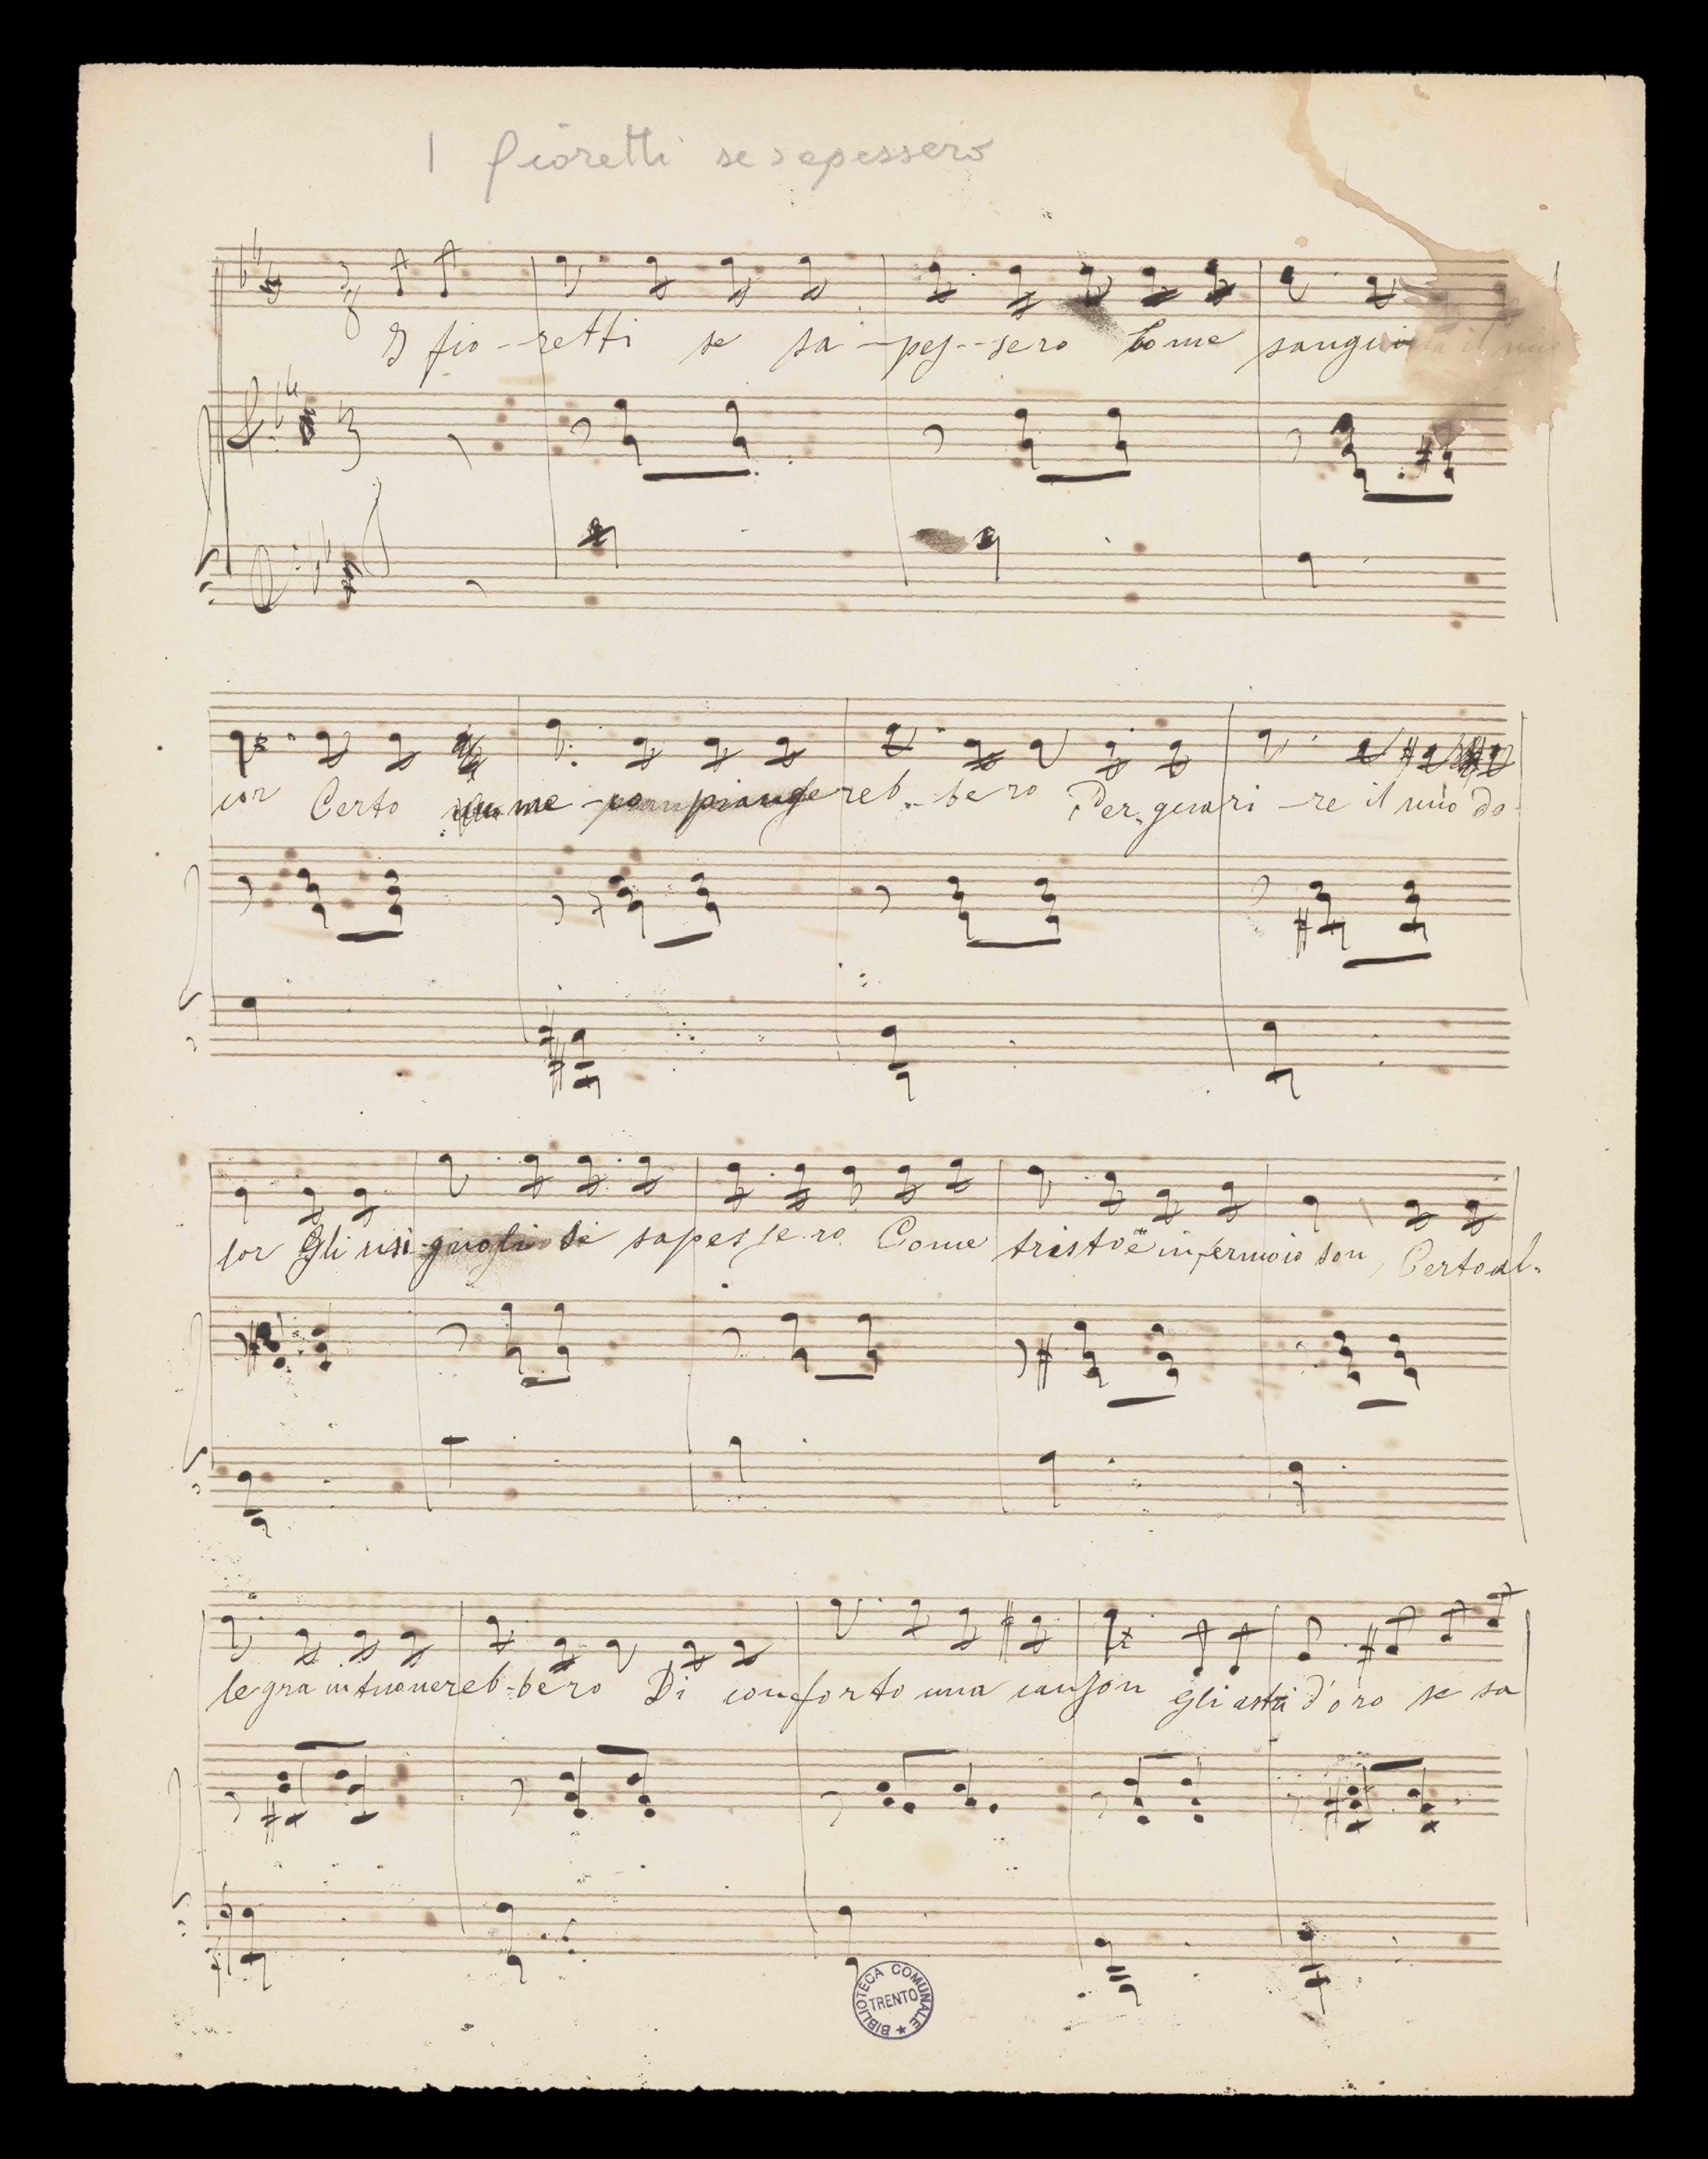 I fioretti se sapessero
I fio--retti se sa-pes--sero Come sanguina il mio
cor Certo me piangereb--bero Per guari-re il mio do
lor Gli usi-gnoli se sapessero Come tristo e infermo io son, Certo al-
legra intuonereb-bero Di conforto una canzon Gli astri d'oro se sa
BIBLIOTECA COMUNALE
TRENTO